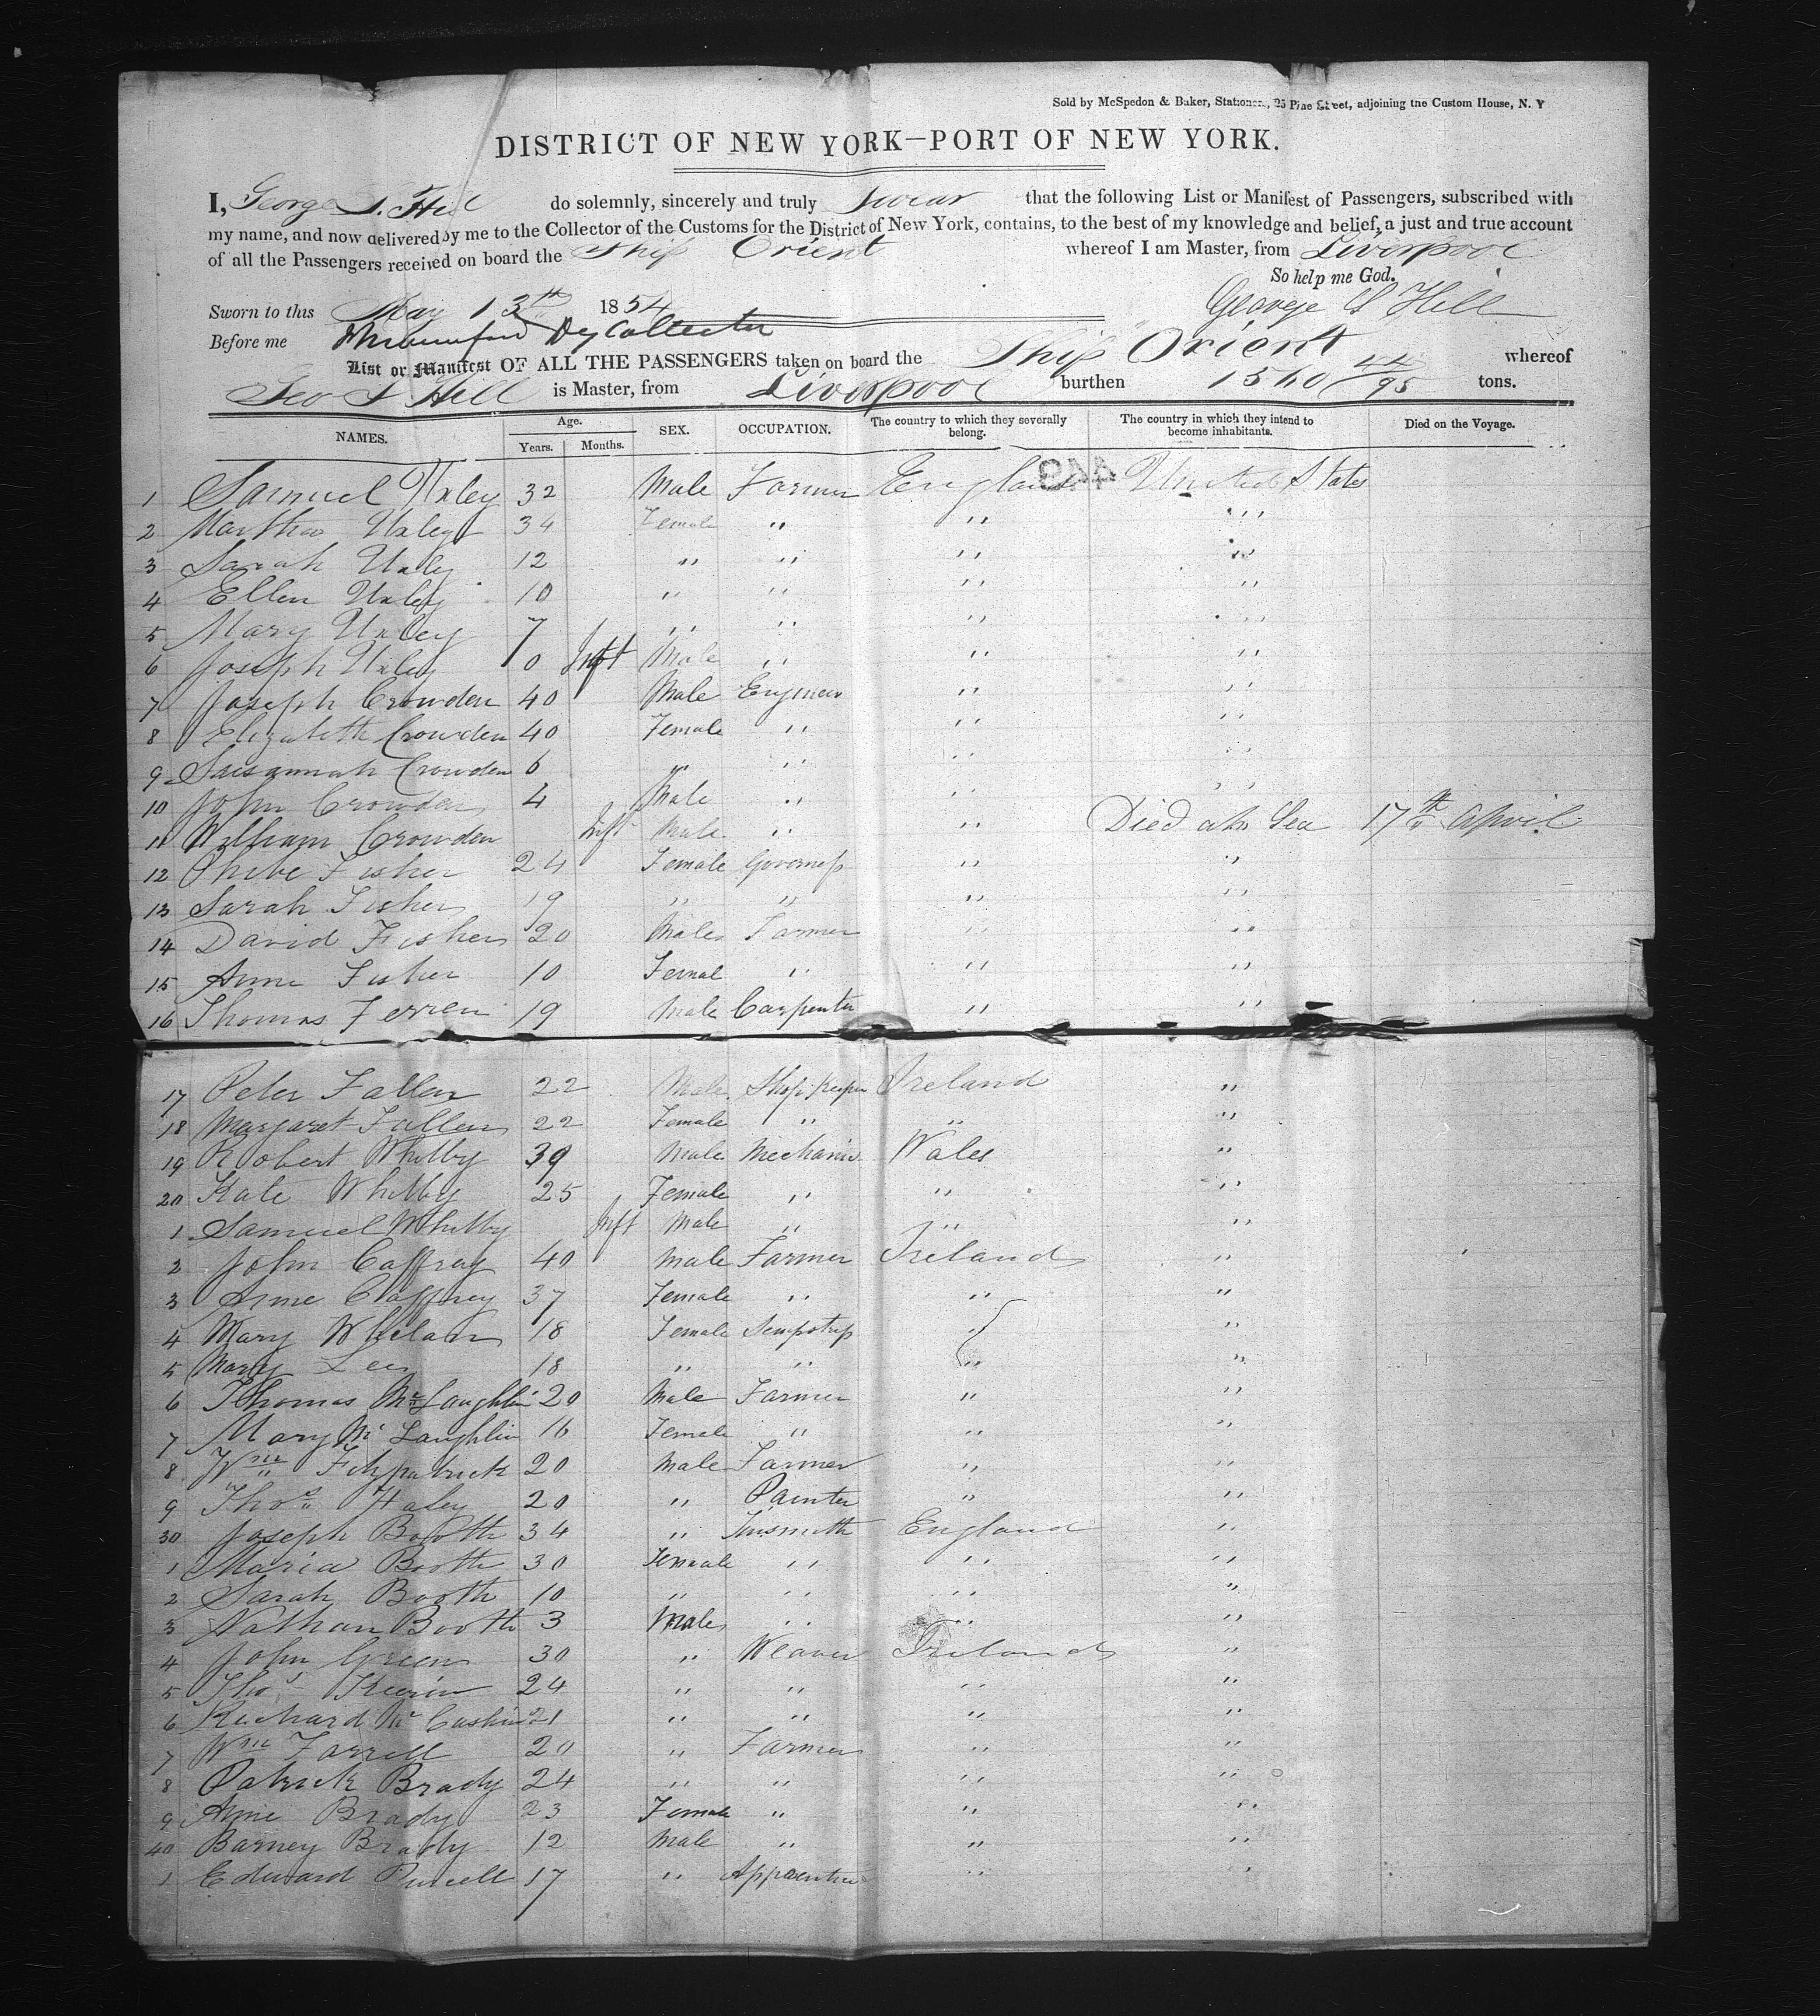 Sold by McSpedon & Baker, Stationers, 25 Pine Street, adjoining the Custom House, N. Y
DISTRICT OF NEW YORK—PORT OF NEW YORK.
I, George S. Hill do solemnly, sincerely and truly Swear that the following List or Manifest of Passengers, subscribed with
my name, and now delivered by me to the Collector of the Customs for the District of New York, contains, to the best of my knowledge and belief, a just and true account
of all the Passengers received on board the Ship Orient whereof I am Master, from Liverpool
So help me God.
Sworn to this May 13th 1854 George S Hill
Before me Dy Collector
List or Manifest OF ALL THE PASSENGERS taken on board the Ship Orient whereof
Geo S Hill is Master, from Liverpool burthen 1560 44/95 tons.
NAMES. Age. Years. Months. SEX. OCCUPATION. The country to which they severally belong. The country in which they intend to become inhabitants. Died on the Voyage.
1 Samuel Uxley 32 Male Farmer England United States
2 Martha Uxley 34 Female " " "
3 Sarah Uxley 12 " " " "
4 Ellen Uxley 10 " " " "
5 Mary Uxley 7 " " " "
6 Joseph Uxley 0 Inft Male " " "
7 Joseph Crowden 40 Male Engineer " "
8 Elizabeth Crowden 40 Female " " "
9 Susannah Crowden 6 " " " "
10 John Crowden 4 Male " " "
11 William Crowden Inft Male " " Died at Sea 17th April
12 Phebe Fisher 24 Female Governess " "
13 Sarah Fisher 19 " " " "
14 David Fisher 20 Male Farmer " "
15 Anne Fisher 10 Femal " " "
16 Thomas Ferren 19 Male Carpenter " "
17 Peter Fallen 22 Male Shop Keeper Ireland "
18 Margaret Fallen 22 Female " " "
19 Robert Whitby 39 Male Mechanic Wales "
20 Kate Whitby 25 Female " " "
1 Samuel Whitby Inft Male " " "
2 John Caffray 40 Male Farmer Ireland "
3 Anne Caffrey 37 Female " " "
4 Mary Whelan 18 Female Sempstress " "
5 Mary Lee 18 " " " "
6 Thomas McLaughlin 20 Male Farmer " "
7 Mary Mc Laughlin 16 Female " " "
8 Wm Fitzpatrick 20 Male Farmer " "
9 Thos Haley 20 " Painter " "
30 Joseph Booth 34 " Tinsmith England "
1 Maria Booth 30 Female " " "
2 Sarah Booth 10 " " " "
3 Nathan Booth 3 Male " " "
4 John Green 30 " Weaver Ireland "
5 Thos 24 " " " "
6 Richard Mc Cashin 21 " " " "
7 Wm Farrell 20 " Farmer " "
8 Patrick Brady 24 " " " "
9 Anne Brady 23 Female " " "
40 Barney Brady 12 Male " " "
1 Edward Purcell 17 " Apprentice " "